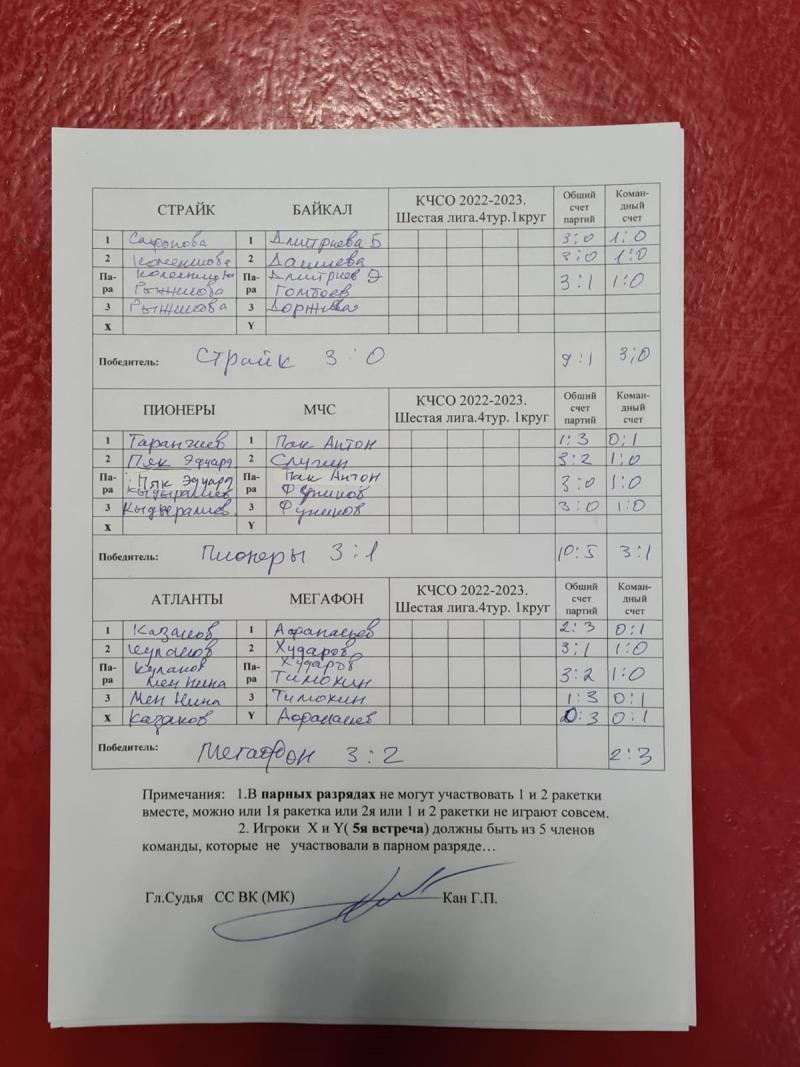 СТРАЙК БАЙКАЛ КЧСО 2022-2023. Шестая лига.4тур.1круг Общий счет партий Коман-дный счет
1 Сафонова 1 Дмитриева Б 3:0 1:0
2 2 3:0 1:0
Па-ра Рыжикова Па-ра Дмитриев Э Гомбоев 3:1 1:0
3 Рыжикова 3 Доржиева
X Y
Победитель: Страйк 3:0 9:1 3:0
ПИОНЕРЫ МЧС КЧСО 2022-2023. Шестая лига.4тур. 1круг Общий счет партий Коман-дный счет
1 Таранчиев 1 Пак Антон 1:3 0:1
2 Пяк Эдуард 2 Слугин 3:2 1:0
Па-ра Пяк Эдуард Кыдыралиев Па-ра Пак Антон 3:0 1:0
3 Кыдыралиев 3 Фуников 3:0 1:0
X Y
Победитель: Пионеры 3:1 10:5 3:1
АТЛАНТЫ МЕГАФОН КЧСО 2022-2023. Шестая лига.4тур. 1круг Общий счет партий Коман-дный счет
1 Казаков 1 Афанасьев 2:3 0:1
2 Куланов 2 Хударов 3:1 1:0
Па-ра Куланов Мен Нина Па-ра Хударов Тимохин 3:2 1:0
3 Мен Нина 3 Тимохин 1:3 0:1
X Казаков Y Афанасьев 0:3 0:1
Победитель: Мегафон 3:2 2:3
Примечания: 1.В парных разрядах не могут участвовать 1 и 2 ракетки
вместе, можно или 1я ракетка или 2я или 1 и 2 ракетки не играют совсем.
2. Игроки X и Y( 5я встреча) должны быть из 5 членов
команды, которые не участвовали в парном разряде…
Гл.Судья СС ВК (МК) Кан Г.П.